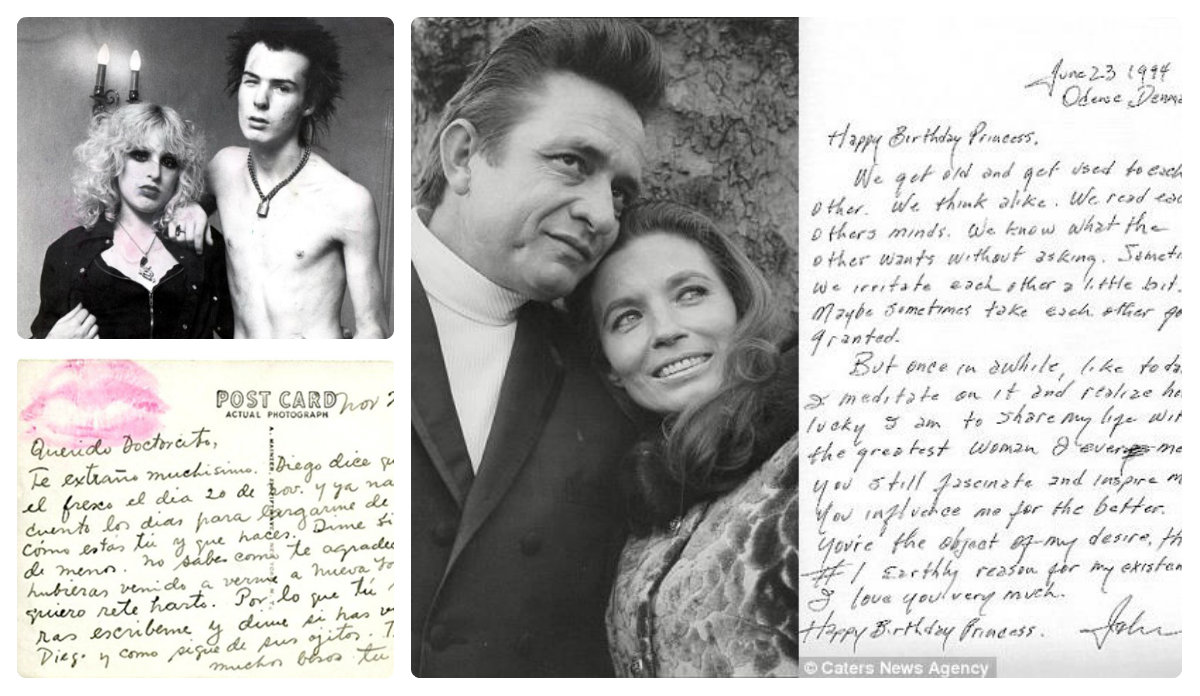 POST CARD
ACTUAL PHOTOGRAPH
Nov 2
Querido Doctorcito,
Te extraño muchisimo. Diego dice qu
el fresco el dia 20 de Nov. y ya na
cuento los dias para largarme de
como estás tú y que haces. Dime si
de menos. no sabes como te agrade
hubieras venido a verme a Nueva Yo
quiero rete harto. Por lo que tú
ras escribeme y dime si has v
Diego y como sigue de sus ojitos. T
muchos besos tu
June 23 1994
Odense Denma
Happy Birthday Princess,
We get old and get used to each
other. We think alike. We read eac
others minds. We know what the
other wants without asking. Someti
we irritate each other a little bit.
Maybe sometimes take each other fo
granted.
But once in awhile, like toda
I meditate on it and realize ho
lucky I am to share my life wit
the greatest woman I ever me
You still fascinate and inspire m
You influence me for the better.
You're the object of my desire, th
#1 Earthly reason for my existen
I love you very much.
Happy Birthday Princess.
John
© Caters News Agency